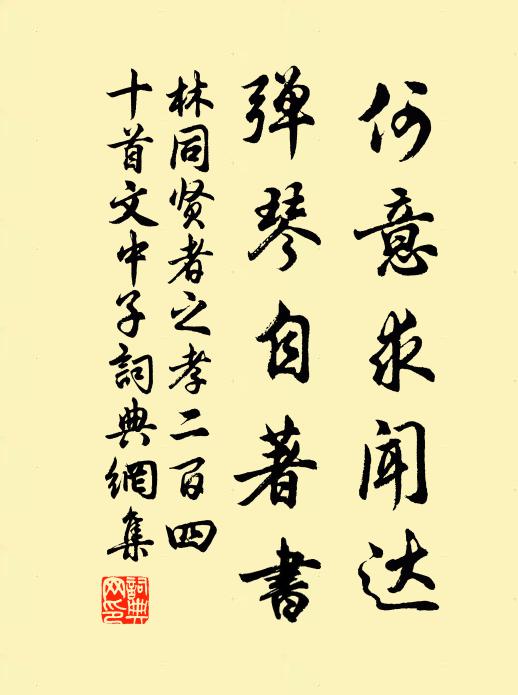 何意求闻达
弹琴自著書
林同贤者之孝二百四
十首文中子詞典網集